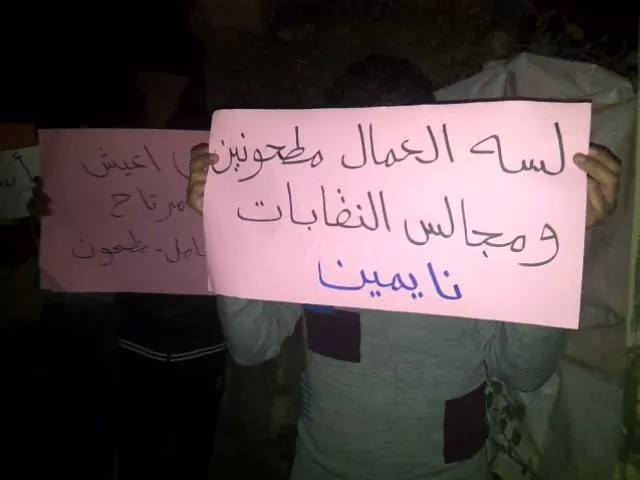 لسه العمال مطحونين
ومجالس النقابات
نايمين
اعيش
مرتاح
مطحون